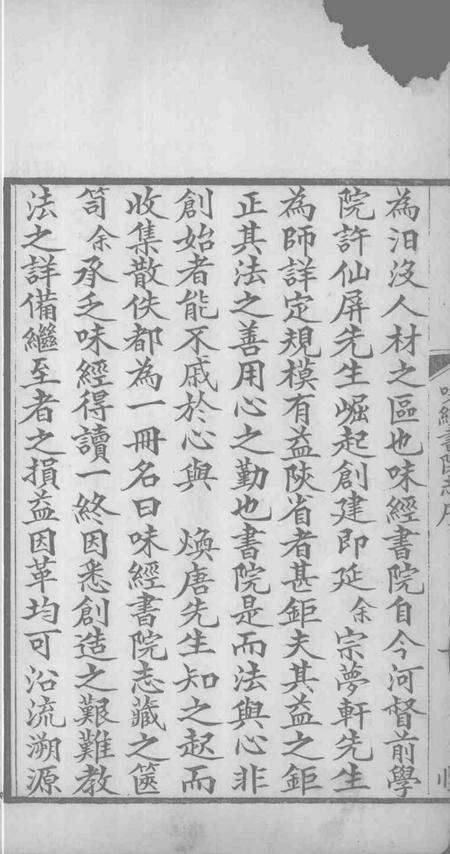 為汨沒人材之區也味經書院自今河督前學
院許仙屏先生崛起創建即延余宗夢軒先生
為師詳定規模有益陝省者甚鉅夫其益之鉅
正其法之善用心之勤也書院是而法與心非
創始者能不戚於心與 煥唐先生知之起而
收集散佚都為一冊名曰味經書院志藏之篋
笥余承乏味經得讀一終因悉創造之艱難教
法之詳備繼至者之損益因革均可沿流溯源